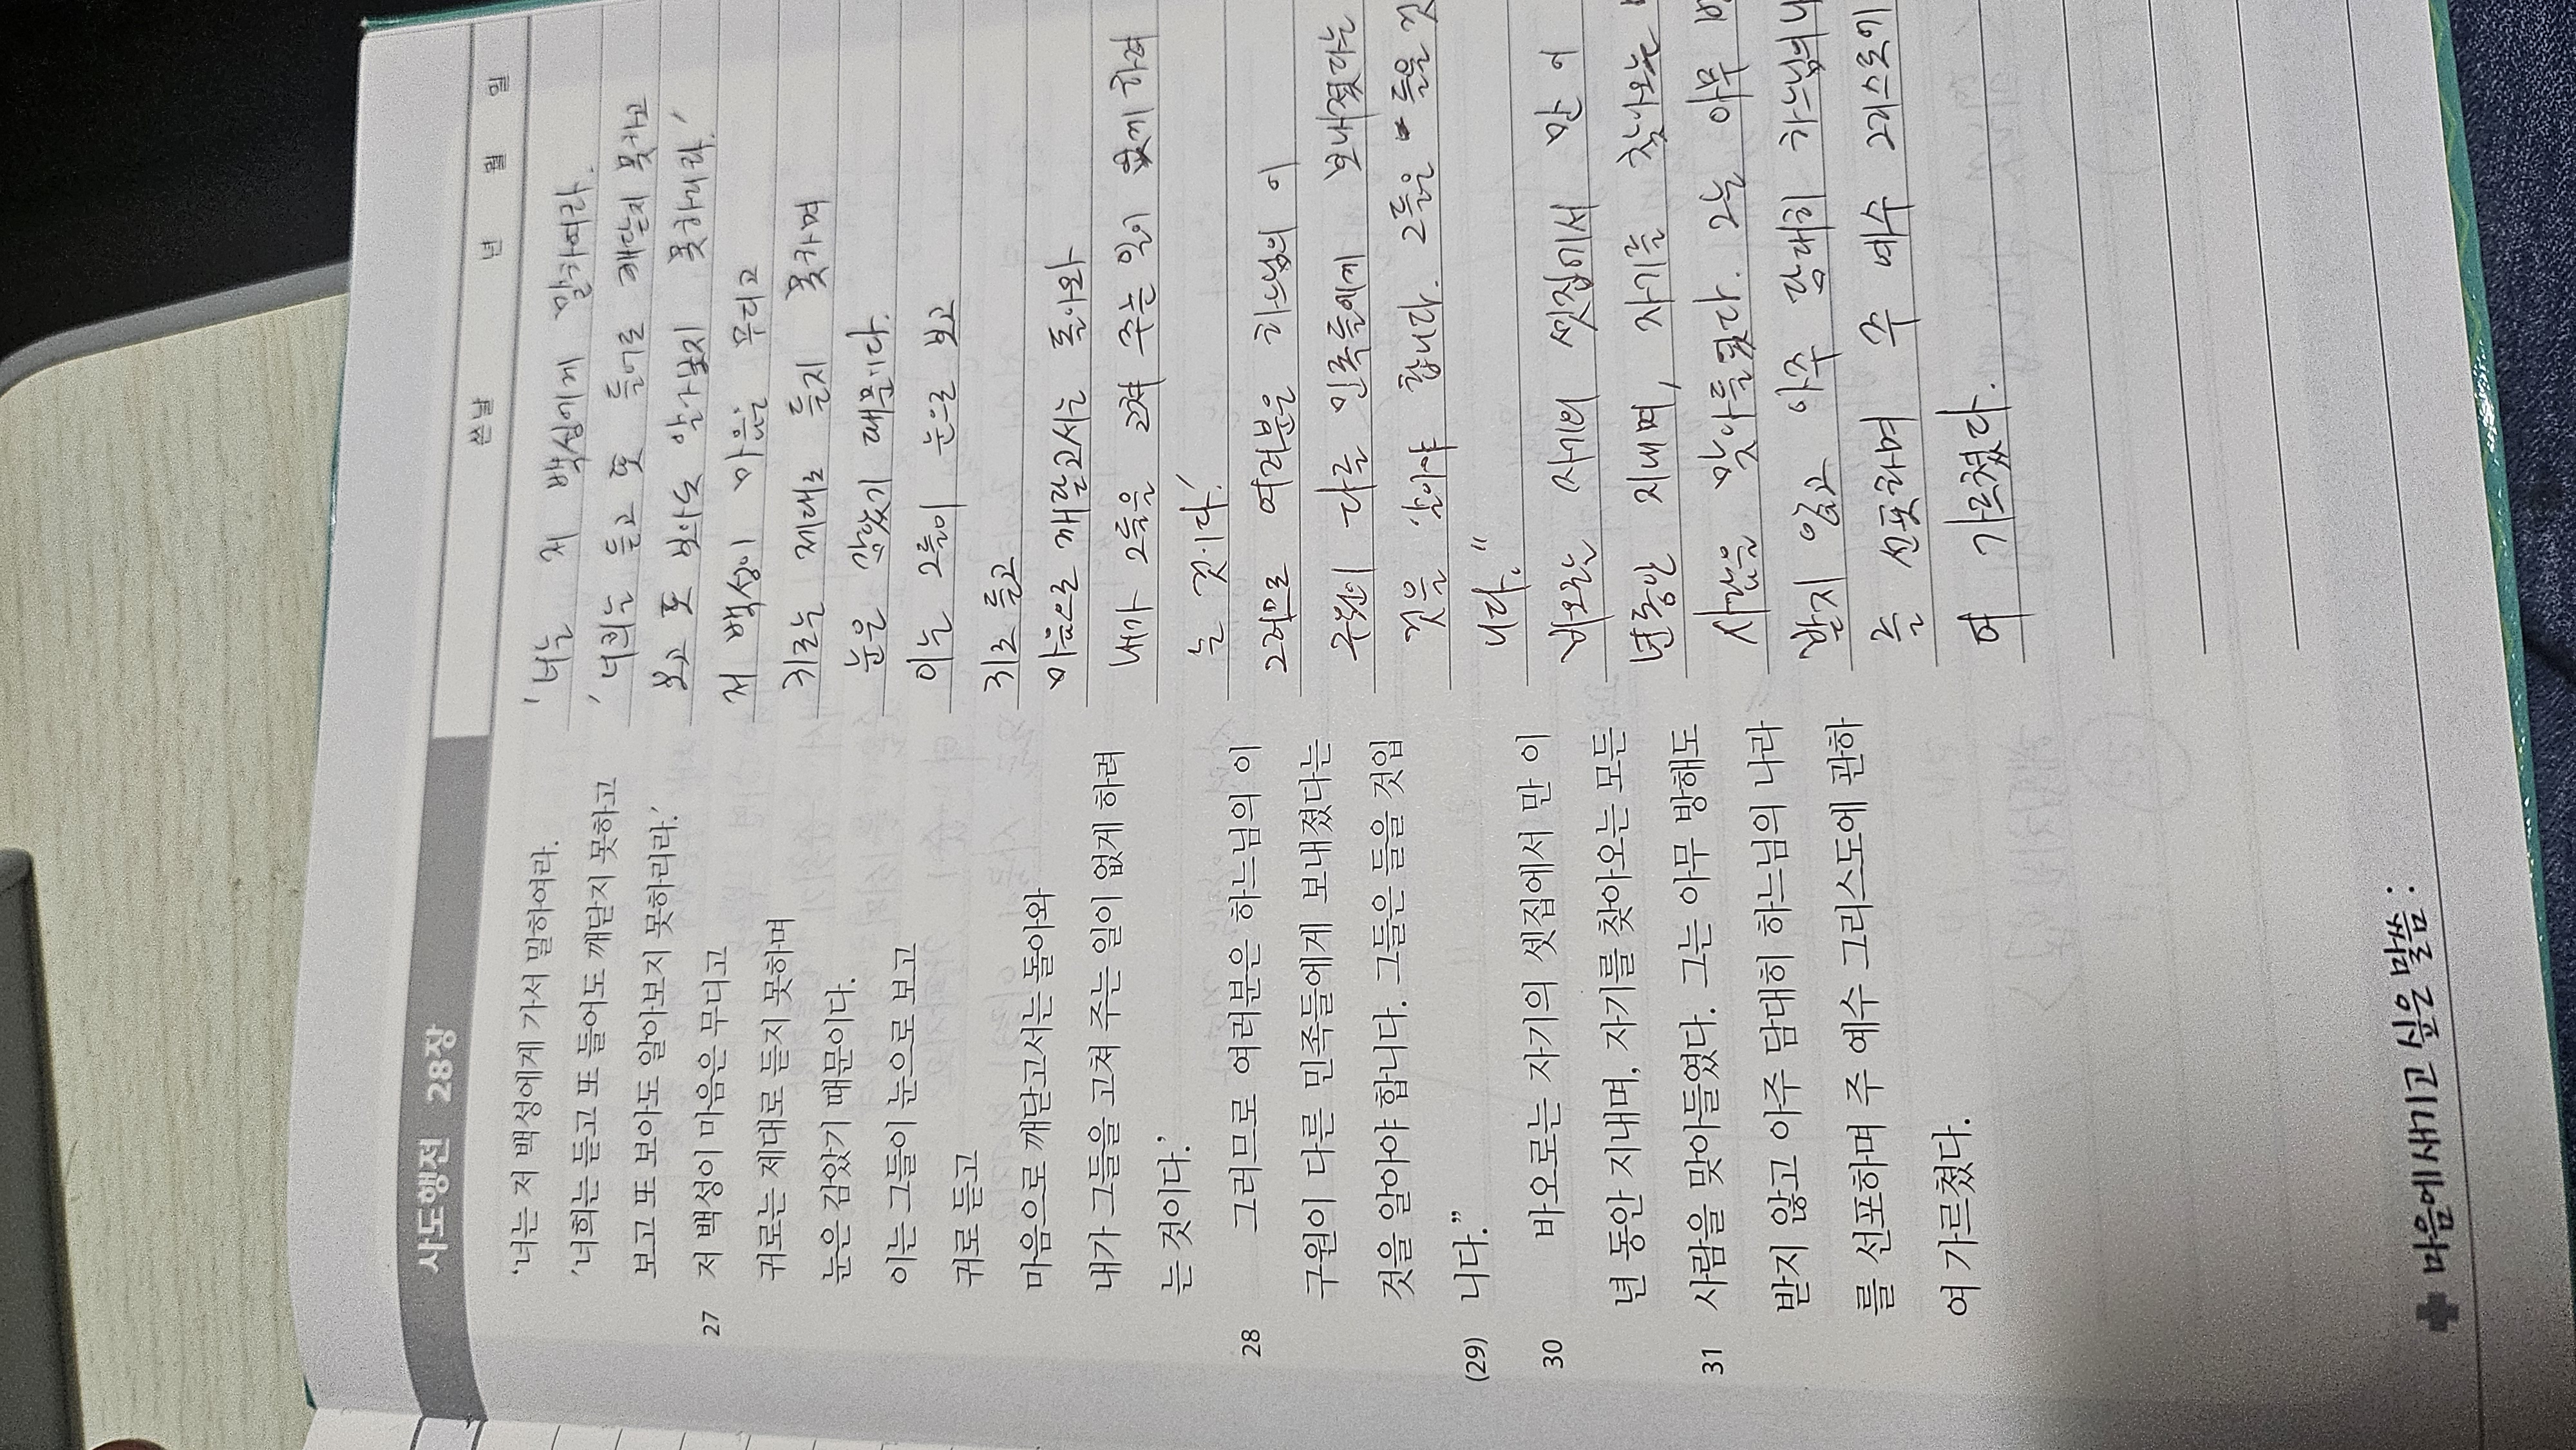 사도행전 28장
쓴날 년 월 일
'너는 저 백성에게 가서 말하여라.
'너희는 듣고 또 들어도 깨닫지 못하고
보고 또 보아도 알아보지 못하리라.'
27 저 백성이 마음은 무디고
귀로는 제대로 듣지 못하며
눈은 감았기 때문이다.
이는 그들이 눈으로 보고
귀로 듣고
마음으로 깨닫고서는 돌아와
내가 그들을 고쳐 주는 일이 없게 하려
는 것이다.'
28 그러므로 여러분은 하느님의 이
구원이 다른 민족들에게 보내졌다는
것을 알아야 합니다. 그들은 들을 것입
(29) 니다.”
30 바오로는 자기의 셋집에서 만 이
년 동안 지내며, 자기를 찾아오는 모든
31 사람을 맞아들였다. 그는 아무 방해도
받지 않고 아주 담대히 하느님의 나라
를 선포하며 주 예수 그리스도에 관하
여 가르쳤다.
'너는 저 백성에게 말하여라.
'너희는 듣고 또 들어도 깨닫지 못하고
보고 또 보아도 알아보지 못하리라.'
저 백성이 마음은 무디고
귀로는 제대로 듣지 못하며
눈은 감았기 때문이다.
이는 그들이 눈으로 보고
귀로 듣고
마음으로 깨닫고서는 돌아와
내가 그들을 고쳐 주는 일이 없게 하려
는 것이다.'
그러므로 여러분은 하느님의 이
구원이 다른 민족들에게 보내졌다는
것을 알아야 합니다. 그들은 들을 것
니다."
바오로는 자기의 셋집에서 만 이
년동안 지내며, 자기를 찾아오는
사람을 맞아들였다. 그는 아무
받지 않고 아주 담대히 하느님의 나
를 선포하며 주 예수 그리스도에
여 가르쳤다.
마음에 새기고 싶은 말씀 :